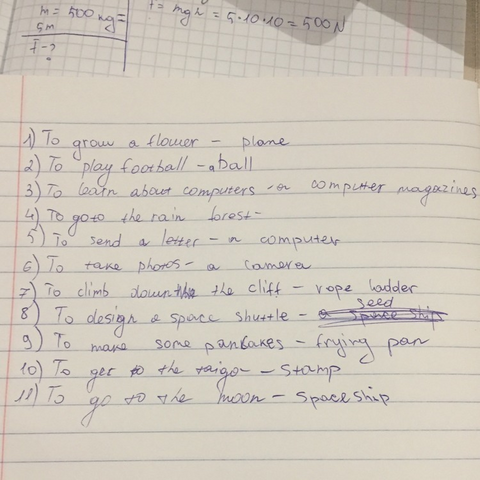 m = 500 kg =
5m
F - ?
F = mgh = 5·10·10 = 500 N
1) To grow a flower - plane
2) To play football - a ball
3) To learn about computers - a computer magazines
4) To go to the rain forest -
5) To send a letter - a computer
6) To take photos - a camera
7) To climb down the the cliff - rope ladder
8) To design a space shuttle - a space ship seed
9) To make some pankakes - frying pan
10) To get to the taiga - stamp
11) To go to the moon - spaceship